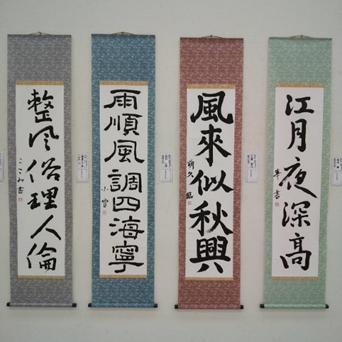 江月夜深高
風來似秋興
雨順風調四海寧
整風俗理人倫